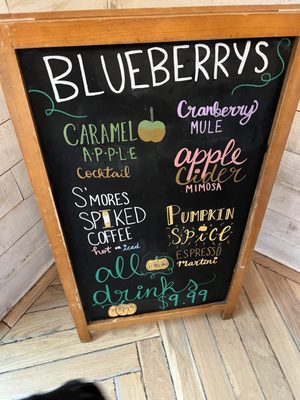 BLUEBERRYS
CARAMEL
APPLE
Cocktail
Cranberry
MULE
apple
Cider
MIMOSA
S'MORES
SPIKED
COFFEE
hot or ICED
PUMPKIN
SPICE
ESPRESSO
MARTINI
all
drinks
$9.19